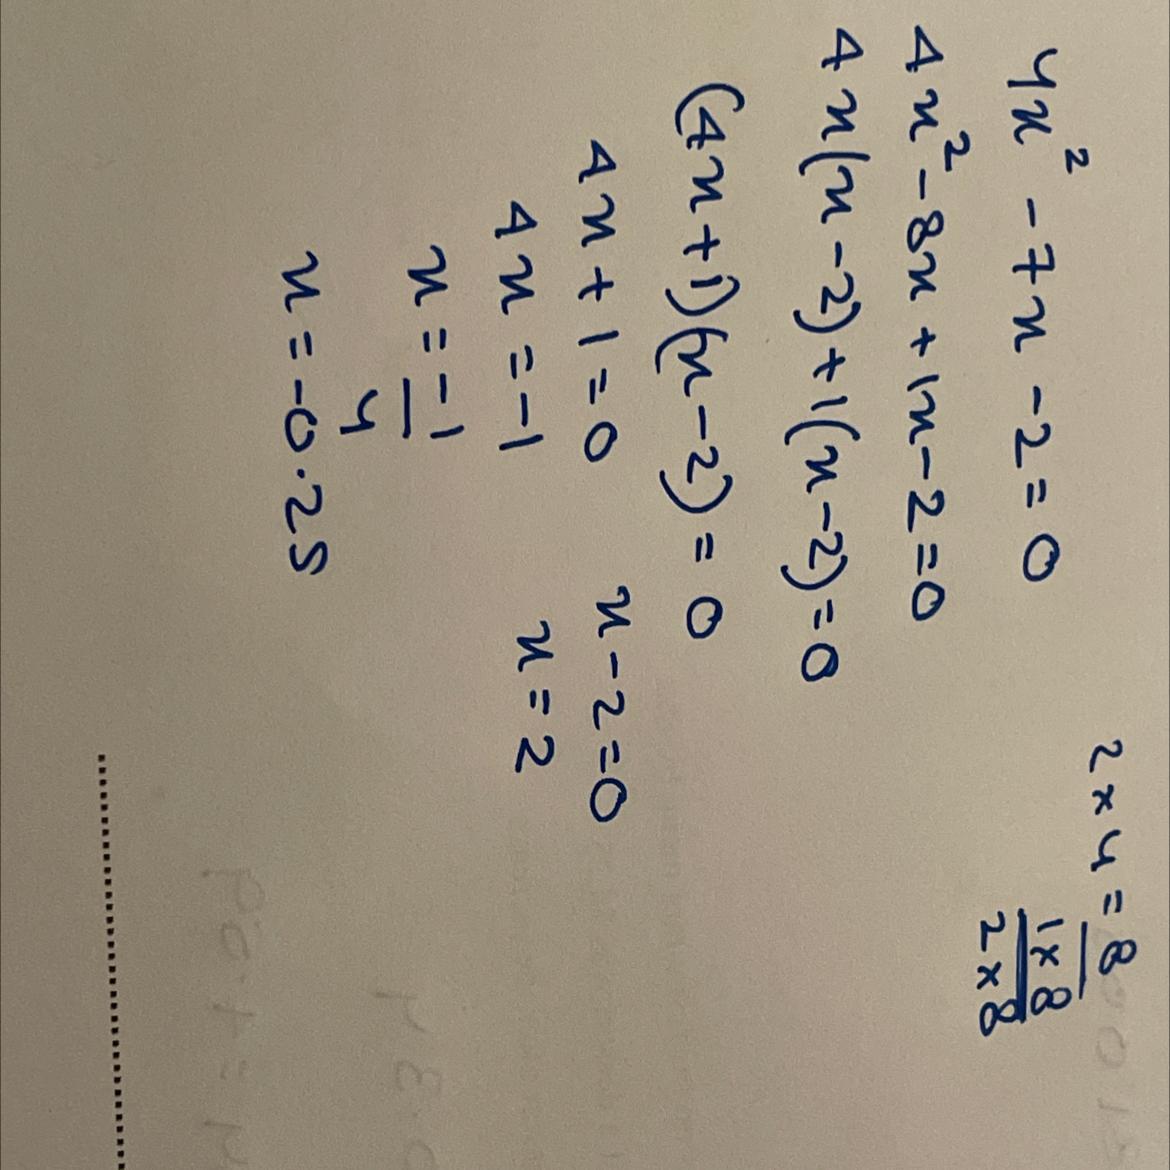 4x² - 7x - 2 = 0
2 × 4 = 8
1 × 8
2 × 8
4x² - 8x + 1x - 2 = 0
4x(x - 2) + 1(x - 2) = 0
(4x + 1)(x - 2) = 0
4x + 1 = 0
x - 2 = 0
4x = -1
x = 2
x = -1/4
x = -0.25